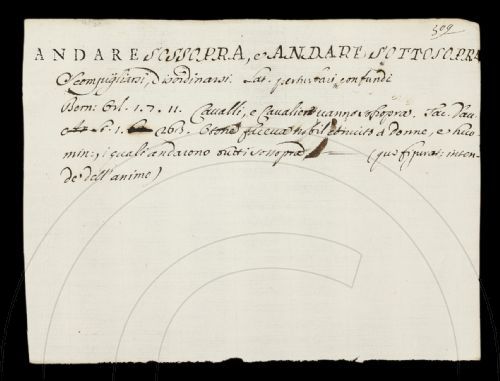 509
ANDARE SOSSOPRA, e ANDARE SOTTOSOPRA
Scompigliarsi, Disordinarsi. Lat. perturbari, confundi
Bern: Orl. 1. 7. 11. Cavalli, e Cavalieri vanno sossopra. Jac. Dav.
6. 1. 263. faceva nobil convito a donne, e huo
min:, i quali andarono tutti sossopra (qui figurat: inten
de dell'anime)